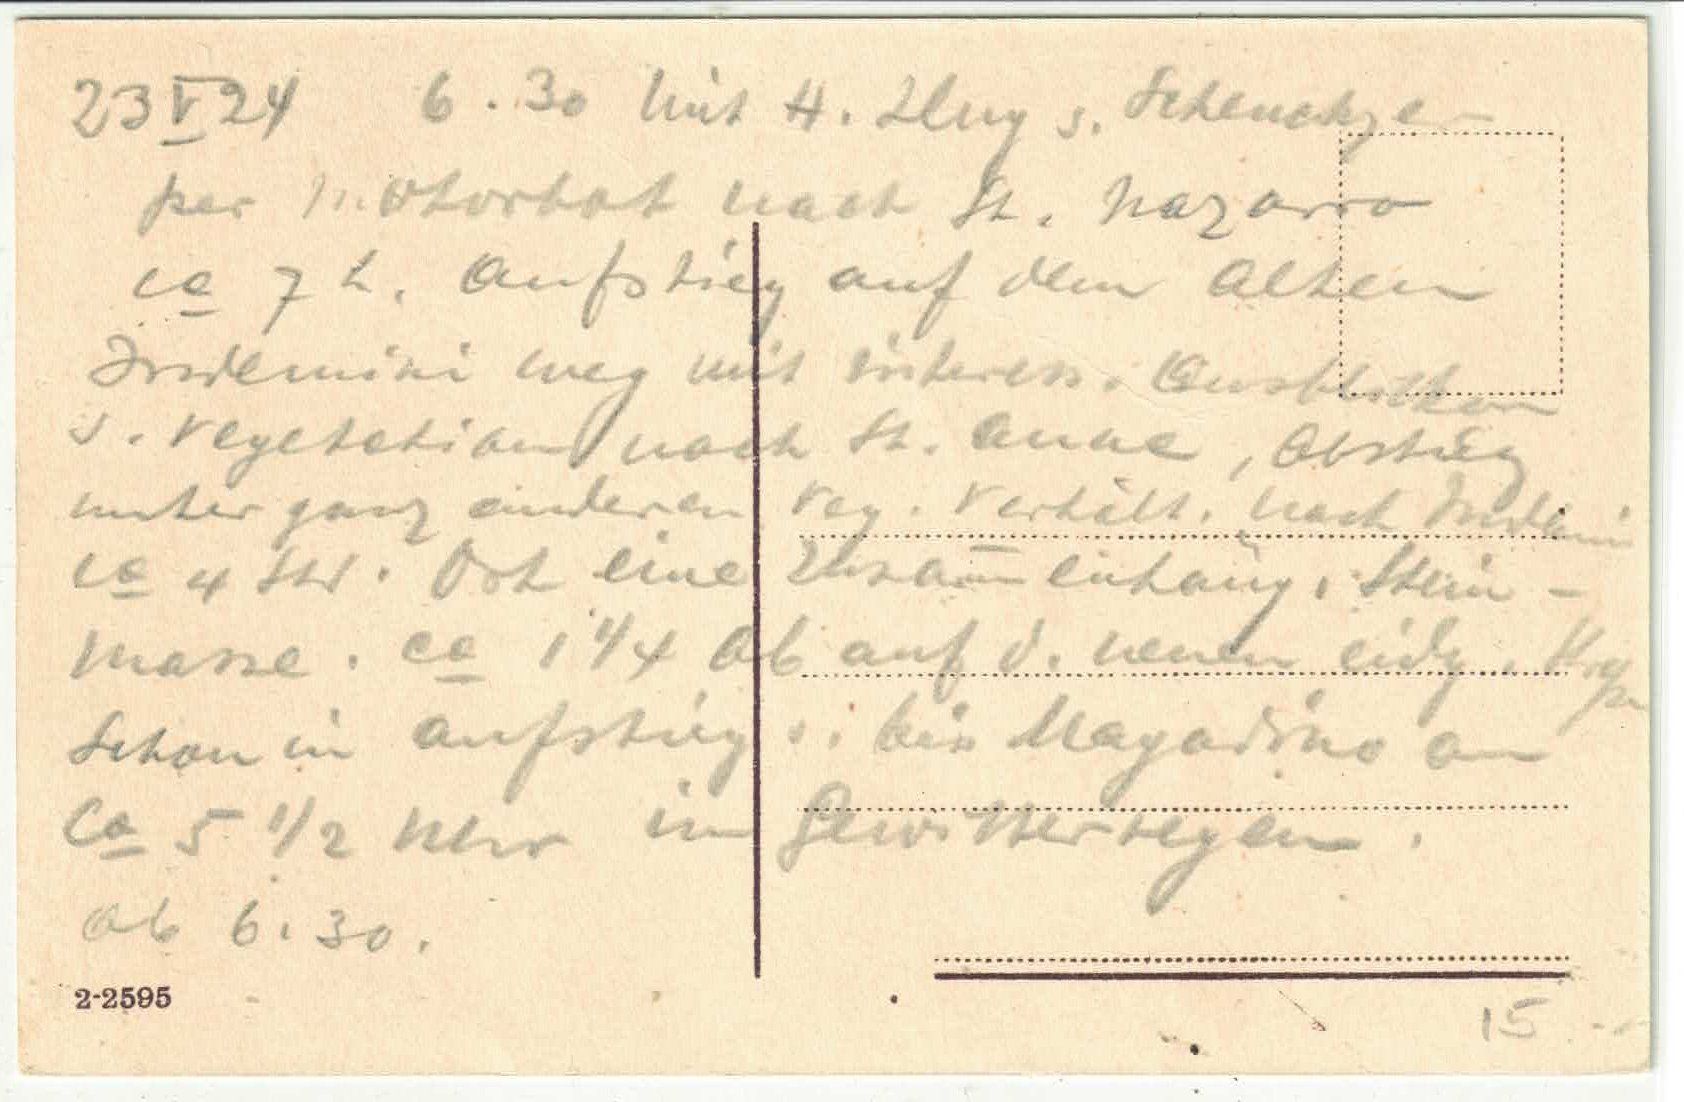 23 V 24 6.30 mit H. Hug s. Scheuchzer
per Motorbot nach St. Nazarro
ca 7 h. Aufstieg auf dem Alten
Indemini weg mit interess. Ausblicken
s. Vegetation nach St. Anna, Abstieg
unter ganz anderen Veg. Verhält. nach Indemini
ca 4 Std. Dort eine Zusam̅enhäng. Stein-
masse. ca 1 1/4 Ab auf d. neuen eidg.
Schon in aufstieg s. bis Magadino an
Ca 5 1/2 Uhr im Gewitterregen.
ab 6.30.
2-2595
15